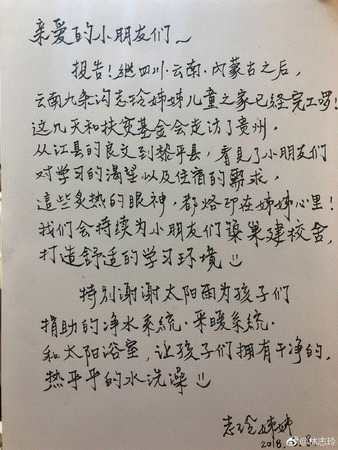 亲爱的小朋友们~
报告!继四川·云南·内蒙古之后,
云南九条沟志玲姊姊儿童之家已经完工啰!
这几天和扶贫基金会走访了贵州,
从江县的良文到黎平县,看见了小朋友们
对学习的渴望以及住宿的需求,
這些炙热的眼神!都烙印在姊姊心里!
我们会持续为小朋友们筹建校舍,
打造舒适的学习环境
特别谢谢太阳雨为孩子们
捐助的净水系统·采暖系统·
和太阳浴室,让孩子们拥有干净的,
热乎乎的水洗澡
志玲姊姊
2018.
@林志玲